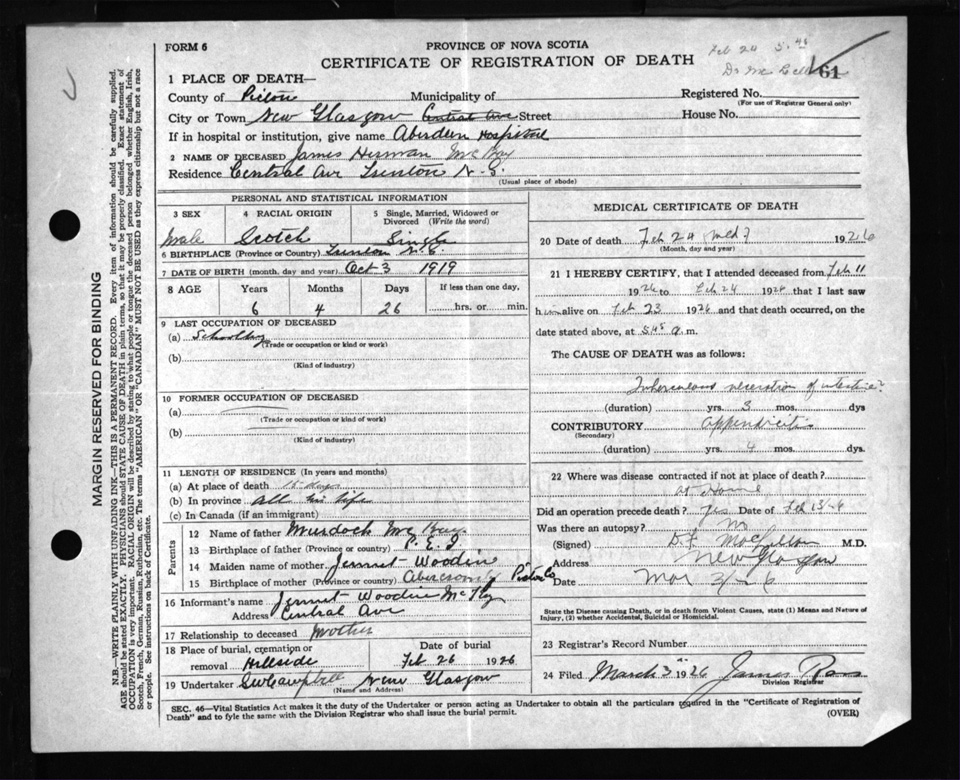 FORM 6
PROVINCE OF NOVA SCOTIA
CERTIFICATE OF REGISTRATION OF DEATH
Feb 24 5.45
Dr Mc
61
1 PLACE OF DEATH—
County of Pictou Municipality of Registered No.
(For use of Registrar General only)
City or Town New Glasgow Central Ave Street House No.
If in hospital or institution, give name Aberdeen Hospital
2 NAME OF DECEASED James Herman McKay
Residence Central Ave Trenton N.S.
(Usual place of abode)
PERSONAL AND STATISTICAL INFORMATION
3 SEX 4 RACIAL ORIGIN 5 Single, Married, Widowed or Divorced (Write the word)
Male Scotch Single
6 BIRTHPLACE (Province or Country) Trenton N.S.
7 DATE OF BIRTH (month, day and year) Oct 3 1919
8 AGE Years Months Days If less than one day,
6 4 26 hrs. or min.
9 LAST OCCUPATION OF DECEASED
(a) Schoolboy
(Trade or occupation or kind or work)
(b)
(Kind of industry)
10 FORMER OCCUPATION OF DECEASED
(a)
(Trade or occupation or kind of work)
(b)
(Kind of industry)
11 LENGTH OF RESIDENCE (In years and months)
(a) At place of death days
(b) In province All his life
(c) In Canada (if an immigrant)
Parents
12 Name of father Murdoch McKay
13 Birthplace of father (Province or country) P.E.I
14 Maiden name of mother Jennet Woodin
15 Birthplace of mother (Province or country) Abercromby Pictou Co
16 Informant's name Jennet Woodin McKay
Address Central Ave
17 Relationship to deceased Mother
18 Place of burial, cremation or removal Hillside
Date of burial
Feb 26 1926
19 Undertaker SW Campbell New Glasgow
(Name and Address)
MEDICAL CERTIFICATE OF DEATH
20 Date of death Feb 24 1926
(Month, day and year)
21 I HEREBY CERTIFY, that I attended deceased from Feb 11
1926 to Feb 24 1926 that I last saw
him alive on Feb 23 1926 and that death occurred, on the
date stated above, at 5.45 a.m.
The CAUSE OF DEATH was as follows:
Tuberculous ulceration of intestine?
(duration) yrs. 3 mos. dys
CONTRIBUTORY Appendicitis
(Secondary)
(duration) yrs. 4 mos. dys.
22 Where was disease contracted if not at place of death?
at Home
Did an operation precede death? yes Date of Feb
Was there an autopsy? no
(Signed) M.D.
Address New Glasgow
Date Mar
State the Disease causing Death, or in death from Violent Causes, state (1) Means and Nature of
Injury, (2) whether Accidental, Suicidal or Homicidal.
23 Registrar's Record Number
24 Filed March 3 1926 James Ross
Division Registrar
SEC. 46—Vital Statistics Act makes it the duty of the Undertaker or person acting as Undertaker to obtain all the particulars required in the "Certificate of Registration of
Death" and to fyle the same with the Division Registrar who shall issue the burial permit.
(OVER)
MARGIN RESERVED FOR BINDING
N.B.—WRITE PLAINLY WITH UNFADING INK—THIS IS A PERMANENT RECORD. Every item of information should be carefully supplied.
AGE should be stated EXACTLY. PHYSICIANS should STATE CAUSE OF DEATH in plain terms, so that it may be properly classified. Exact statement of
OCCUPATION is very important. RACIAL ORIGIN will be described by stating to what people or tongue the deceased person belonged whether English, Irish,
Scotch, French, German, Russian, Ruthenian, etc. The terms "AMERICAN" OR "CANADIAN" MUST NOT BE USED as they express citizenship but not a race
or people. See instructions on back of Certificate.